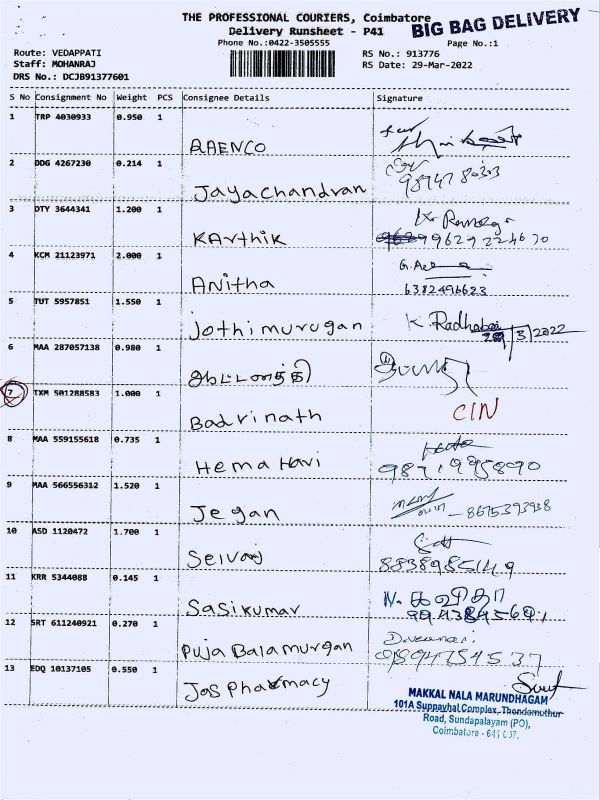 THE PROFESSIONAL COURIERS, Coimbatore
BIG BAG DELIVERY
Delivery Runsheet - P41
Phone No.:0422-3505555
Page No.:1
Route: VEDAPPATI
RS No.: 913776
Staff: MOHANRAJ
RS Date: 29-Mar-2022
DRS No.: DCJB91377601
S No Consignment No Weight PCS Consignee Details Signature
1 TRP 4030933 0.950 1
RAENCO
2 DDG 4267230 0.214 1
Jayachandran 98947 80303
3 DTY 3644341 1.200 1
Karthik 9629224670
4 KCM 21123971 2.000 1
Anitha 6382496623
5 TUT 5957851 1.550 1
Jothimurugan K. Radhabai
29/3/2022
6 MAA 287057138 0.980 1
7 TXM 501288583 1.000 1
Badrinath CIN
8 MAA 559155618 0.735 1
Hema
9 MAA 566556312 1.520 1
Jegan 8675393938
10 ASD 1120472 1.700 1
Selvaraj
11 KRR 5344088 0.145 1
N. கவிதா
Sasikumar
12 SRT 611240921 0.270 1
Puja Balamurgan
13 EDQ 10137105 0.550 1
Jas Pharmacy
MAKKAL NALA MARUNDHAGAM
101A Suppayhal Complex, Thondamuthur
Road, Sundapalayam (PO),
Coimbatore - 641 007.